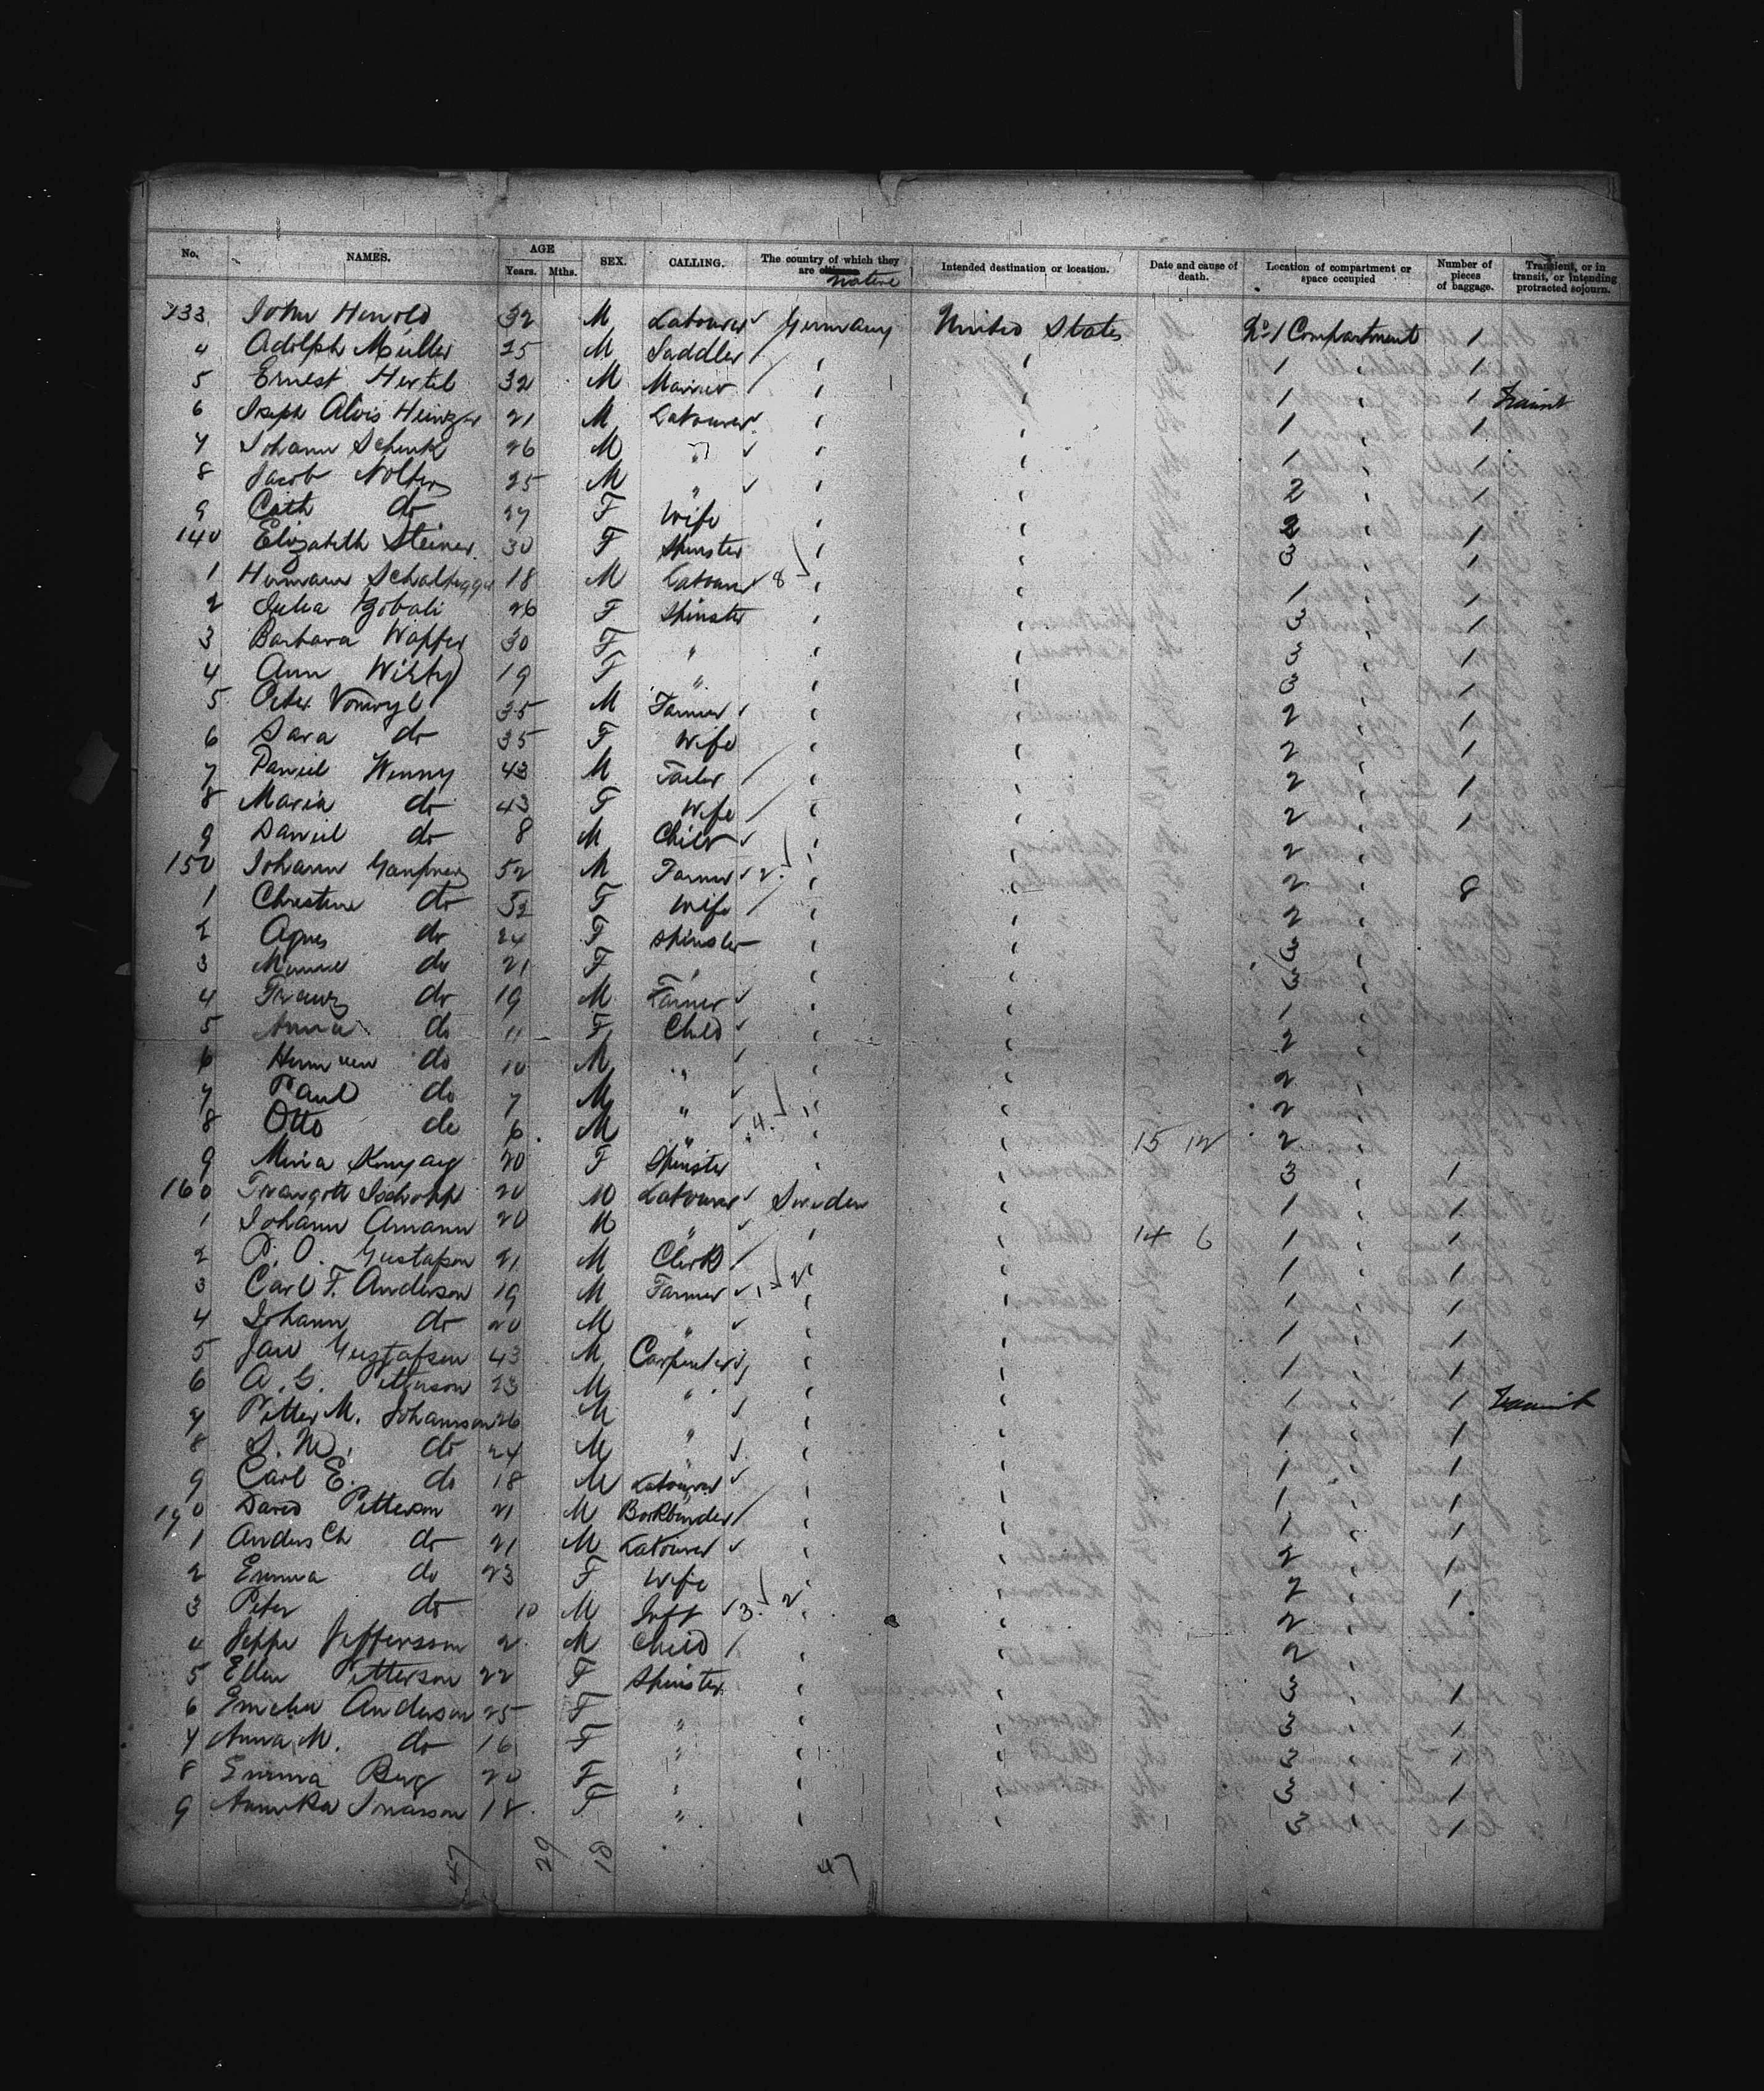 No. NAMES. AGE Years. Mths. SEX. CALLING. The country of which they are citizens native Intended destination or location. Date and cause of death. Location of compartment or space occupied Number of pieces of baggage. Transient, or in transit, or intending protracted sojourn.
133 John Herold 32 M Labourer Germany United States No 1 Compartment 1
4 Adolph Müller 25 M Saddler 1 1
5 Ernest Hertel 32 M 1 1
6 Joseph Alois 21 M Labourer 1 1
7 Johann Schenk 26 M " 1 1
8 Jacob 25 M " 2 1
9 Cath do 27 F Wife 2 1
140 Elizabeth Steiner 30 F Spinster 3
1 Hermann 18 M Labourer 8 1 1
2 Julia 26 F Spinster 3 1
3 Barbara 30 F " 3 1
4 Ann 19 F " 3 1
5 Peter Vonwyl 35 M Farmer 2 1
6 Sara do 35 F Wife 2 1
7 Daniel Wenny 43 M Tailor 2 1
8 Maria do 43 F Wife 2 1
9 Daniel do 8 M Child 2
150 Johann 52 M Farmer 2 2 8
1 Christine do 52 F Wife 2
2 Agnes do 24 F Spinster 3
3 do 21 F " 3
4 Franz do 19 M Farmer 1
5 Anna do 11 F Child 2
6 Hermann do 10 M " 2
7 Paul do 7 M " 2
8 Otto do 6 M " 4 15 12 2
9 20 F Spinster 3 1
160 Traugott 20 M Labourer Sweden 1 1
1 Johann Amann 20 M " 14 6 1 1
2 P. O. Gustafson 21 M Clerk 1 1
3 Carl F. Anderson 19 M Farmer 1 1
4 Johann do 20 M " 1 1
5 Jan Gustafson 43 M Carpenter 1 1
6 A. G. Petterson 23 M " 1 1
7 Petter M. Johansson 26 M " 1 1
8 do 24 M " 1 1
9 Carl E. do 18 M Labourer 1 1
170 David Petterson 21 M Bookbinder 1 1
1 Anders Ch do 21 M Labourer 2 1
2 Emma do 23 F Wife 2 1
3 Peter do 10 M Inft 3 2 2
4 Jeppe Jeffersson 2 M Child 2
5 Ellen Petterson 22 F Spinster 3 1
6 Anderson 25 F " 3 1
7 Anna M. do 16 F " 3 1
8 Emma Berg 20 F " 3 1
9 Annika Jonasson 18 F " 3 1
47 29 18 47